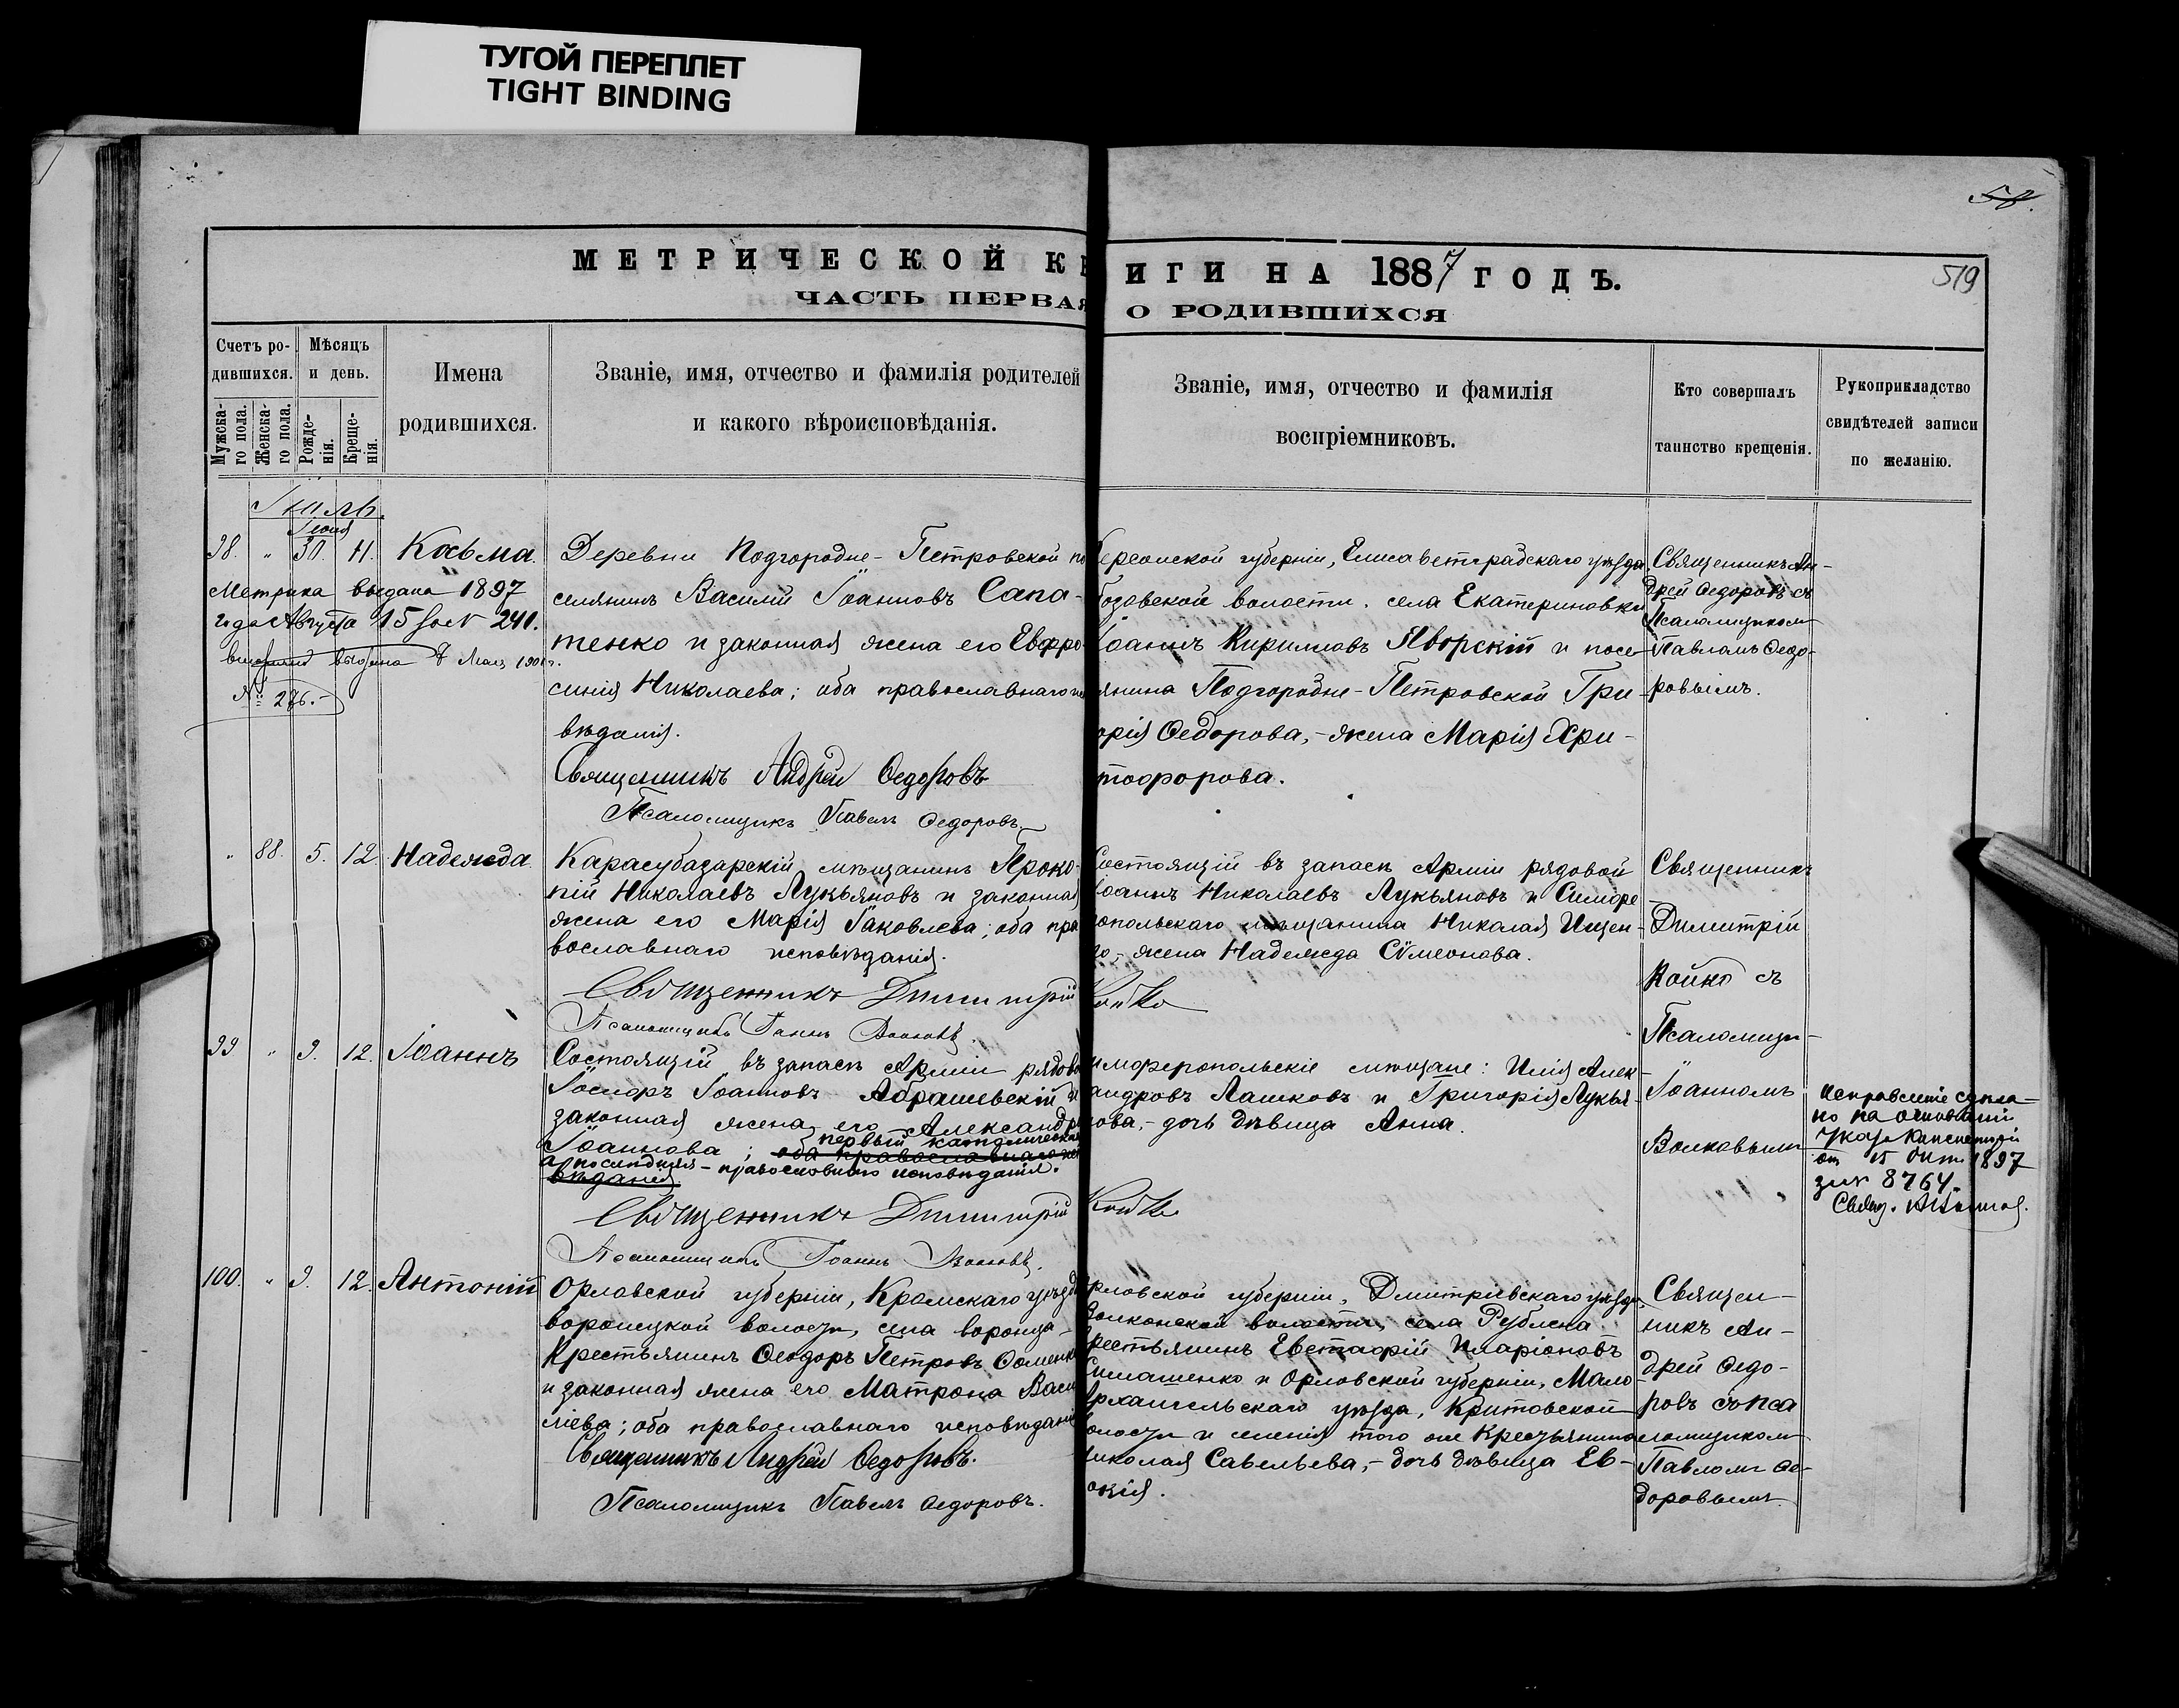 ТУГОЙ ПЕРЕПЛЕТ
TIGHT BINDING
58.
519
МЕТРИЧЕСКОЙ К ИГИ НА 1887 ГОДЪ.
ЧАСТЬ ПЕРВАЯ О РОДИВШИХСЯ
Счетъ ро-
дившихся.
Мужска-
го пола.
Женска-
го пола.
Мѣсяцъ
и день.
Рожде-
нія.
Креще-
нія.
Имена
родившихся.
Званіе, имя, отчество и фамилія родителей
и какого вѣроисповѣданія.
Званіе, имя, отчество и фамилія
воспріемниковъ.
Кто совершалъ
таинство крещенія.
Рукоприкладство
свидѣтелей записи
по желанію.
Іюль.
Іюня
98. " 30. 11. Косьма.
Метрика выдана 1897
года Августа 15 241.
выдана 8 1901 г.
№ 276.
Деревни Подгородне-Петровской по
селянинъ Василій Іоанновъ Сапа-
тенко и законная жена его Евфро-
синія Николаева; оба православнаго
вѣданія.
Священникъ Андрей Ѳедоровъ
Псаломщикъ Павелъ Ѳедоровъ.
Херсонской губерніи, Елисаветградскаго уѣзда,
волости, села Екатериновки
Іоаннъ Кириловъ Яворскій и посе-
янина Подгородне-Петровской Гри-
орія Ѳедорова,-жена Марія Хри-
тофорова.
Священникъ Ан-
дрей Ѳедоровъ съ
Псаломщикомъ
Павломъ Ѳедо-
ровымъ.
" 88. 5. 12. Надежда
Карасубазарскій мѣщанинъ Проко-
пій Николаевъ Лукьяновъ и законная
жена его Марія Іаковлева; оба пра
вославнаго исповѣданія.
Священникъ Димитрій Койко
Псаломщикъ Іоаннъ Волковъ.
Состоящій въ запасѣ Арміи рядовой
Іоаннъ Николаевъ Лукьяновъ и Симфе
опольскаго мѣщанина Николая Ищен-
ко,-жена Надежда Сѵмеонова.
Священникъ
Димитрій
Койко съ
Псаломщи-
Іоанномъ
Волковымъ
99 " 9. 12. Іоаннъ
Состоящій въ запасѣ Арміи рядово
Іосифъ Іоанновъ Абрашевскій и
законная жена его Александра
Іоаннова; оба православнаго
первый католическаго
а послѣдняя - православнаго исповѣданія.
вѣданія
Священникъ Димитрій Койко
Псаломщикъ Іоаннъ Волковъ.
имферопольскіе мѣщане: Илія Алек-
андровъ Лашковъ и Григорія Лукья-
нова,-дочь дѣвица Анна.
Исправленіе сдѣла-
но на основаніи
Указа Консисторіи
от 15 1897
за № 8764.
Свящ.
100. " 9. 12. Антоній
Орловской губерніи, Кромскаго уѣзда
воронецкой волости, села воронца-
Крестьянинъ Ѳеодоръ Петровъ
и законная жена его Матрона Васи
ліева; оба православнаго исповѣданія
Священникъ Андрей Ѳедоровъ.
Псаломщикъ Павелъ Ѳедоровъ.
рловской губерніи, Дмитріевскаго уѣзда,
волости, села
рестьянинъ Евстафій Иларіоновъ
и Орловской губерніи, Мало-
Архангельскаго уѣзда,
олости и селенія того же Крестьянина
иколая Савельева,-дочь дѣвица Ев-
окія.
Священ-
никъ Ан-
дрей Ѳедо-
ровъ съ пса
ломщикомъ
Павломъ Ѳе-
доровымъ.